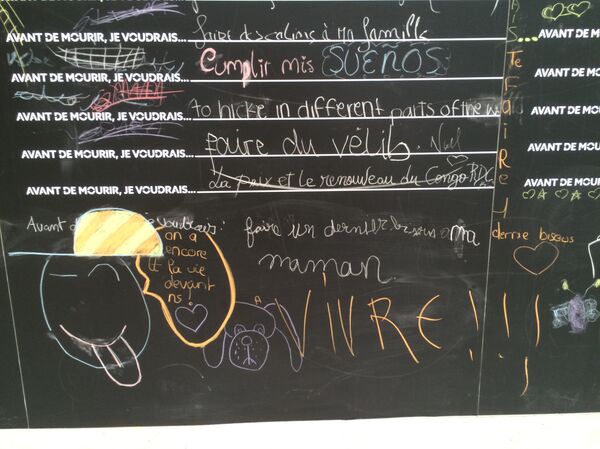 faire des calins à ma famille
AVANT DE MOURIR, JE VOUDRAIS...
Cumplir mis SUEÑOS
AVANT DE MOURIR, JE VOUDRAIS...
to hicke in different parts of the
AVANT DE MOURIR, JE VOUDRAIS...
faire du vélib. Noel
AVANT DE MOURIR, JE VOUDRAIS...
La paix et le renouveau du Congo RDC
AVANT DE MOURIR, JE VOUDRAIS...
AVANT
AVANT DE
AVANT DE M
AVANT DE M
AVANT DE MO
Avant voudrais: faire un dernier bisous a ma
maman.
dernie bisous
on a
encore
la vie
devant
ns!
VIVRE!!!